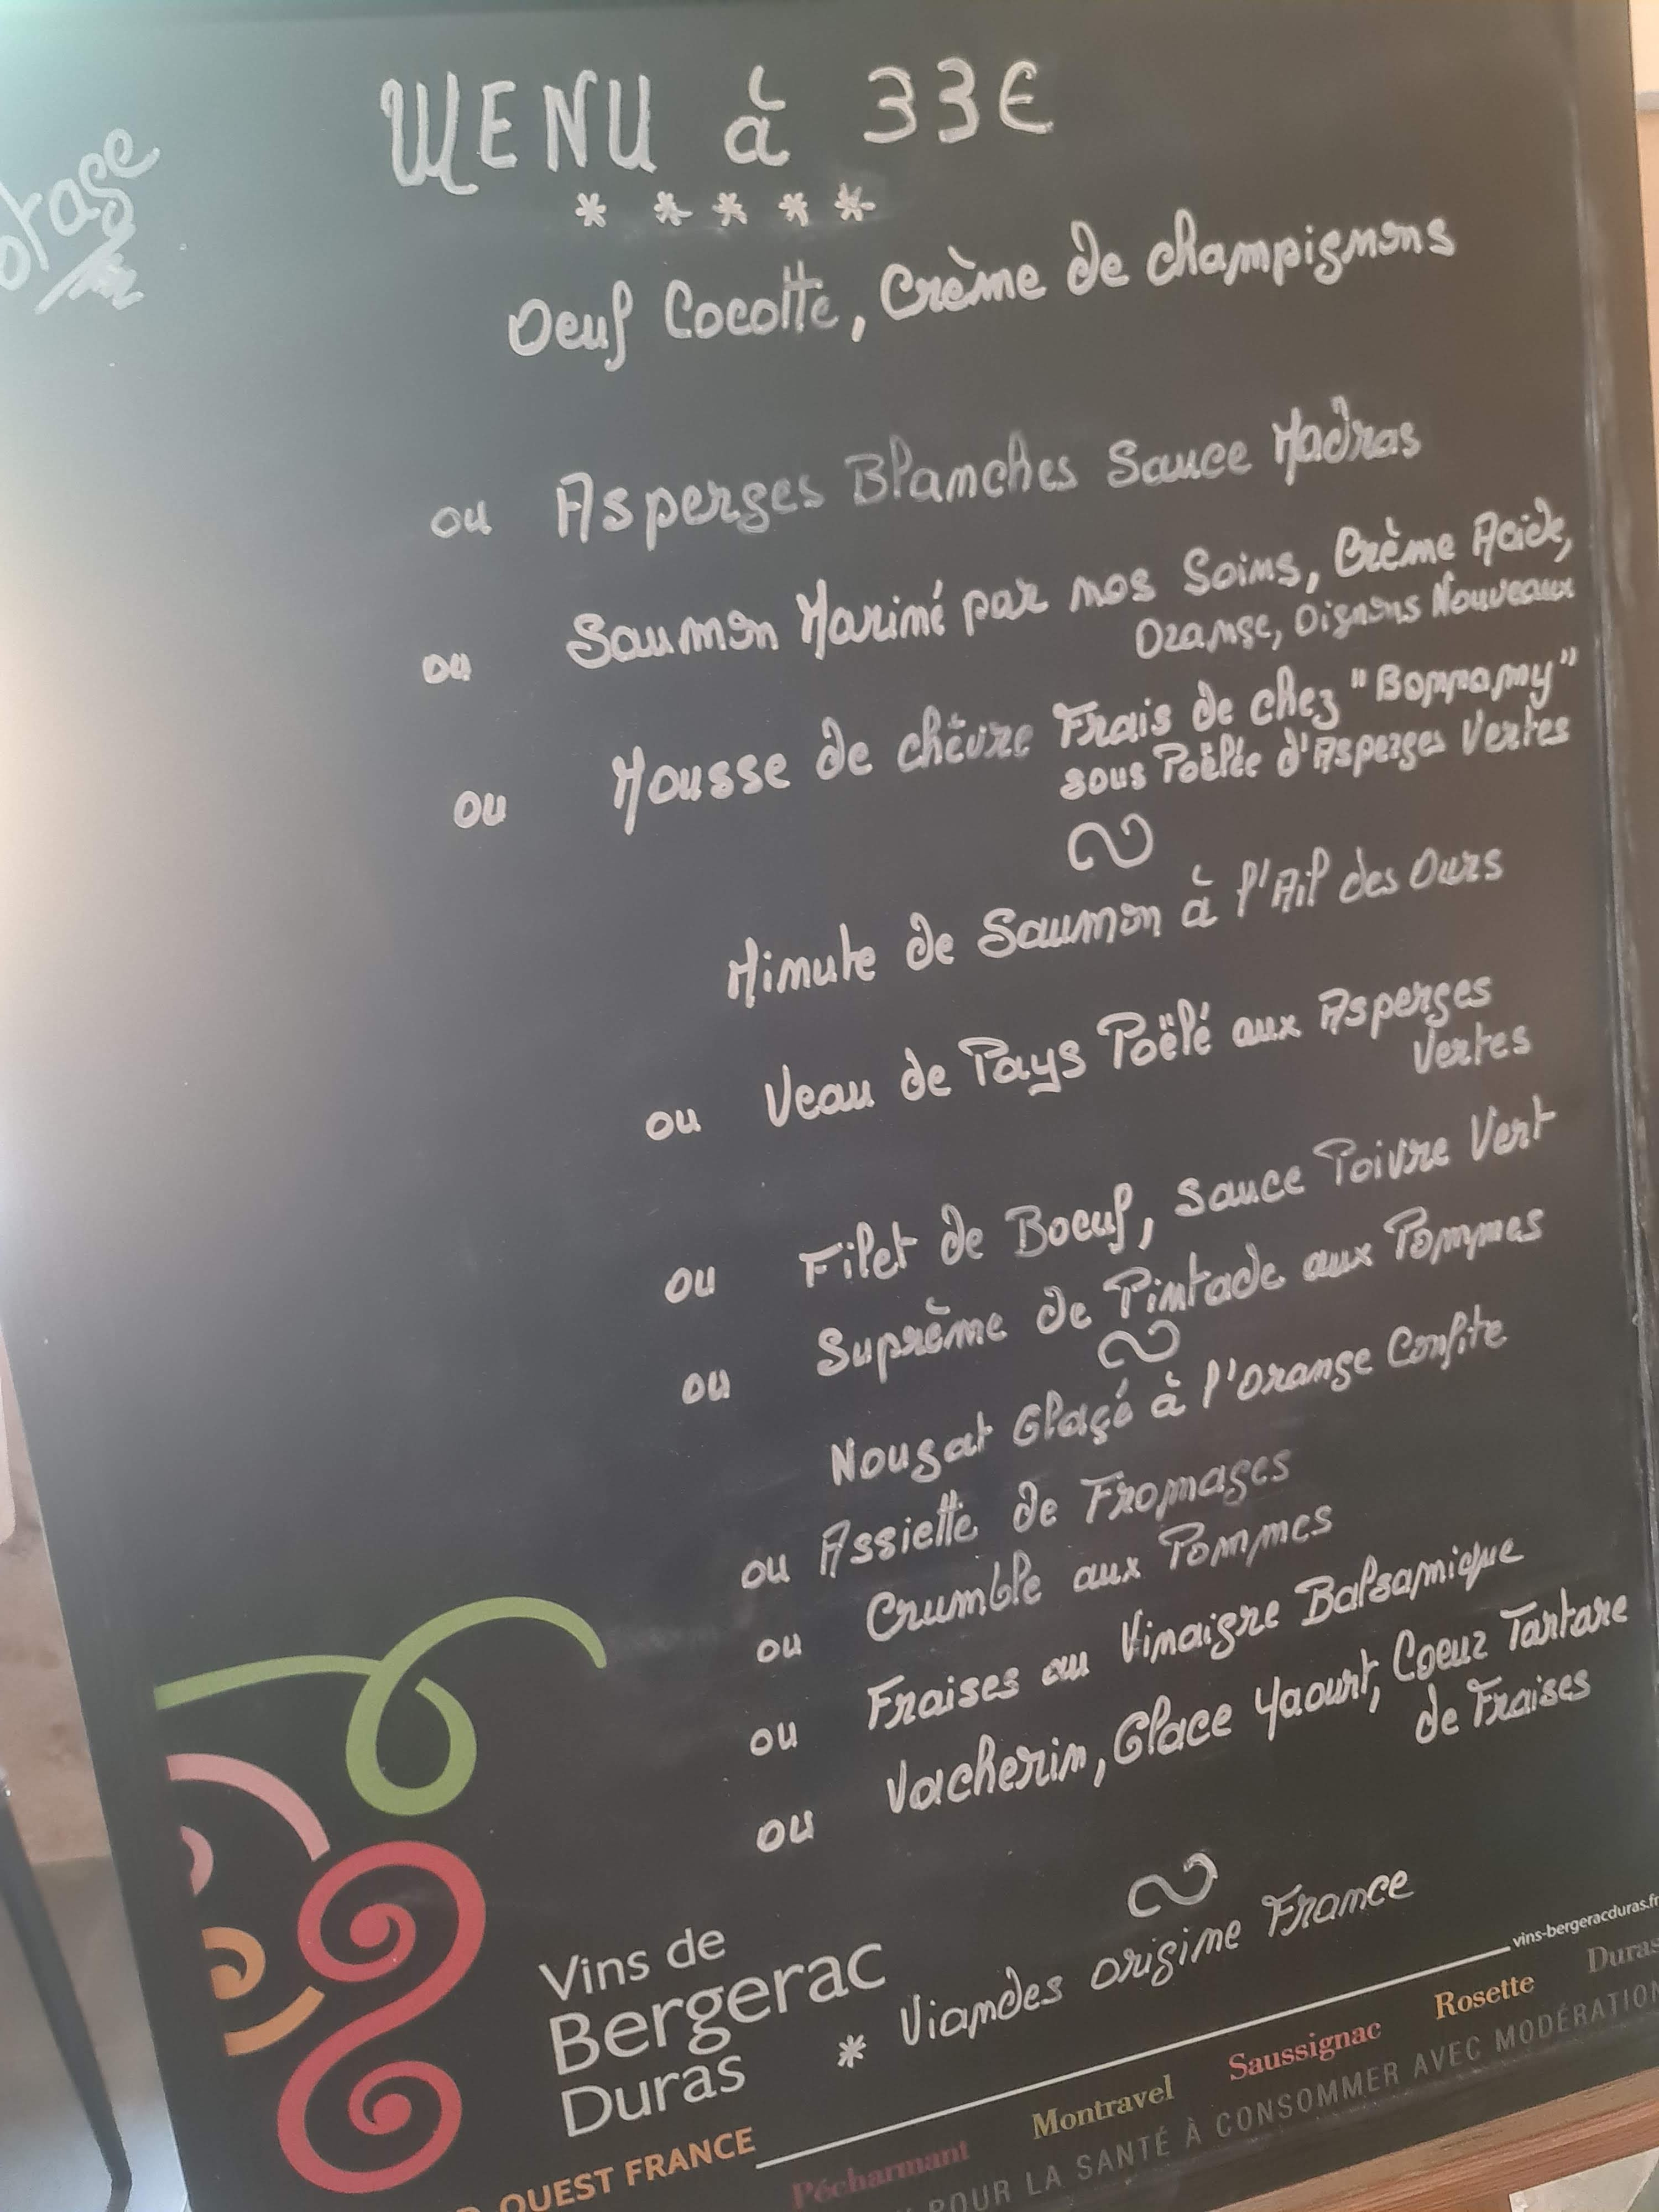 MENU à 33€
* * * * *
Oeuf Cocotte, Crème de champignons
ou Asperges Blanches Sauce Madras
ou Saumon Mariné par nos Soins, Crème Acide,
Orange, Oignons Nouveaux
ou Mousse de chèvre Frais de chez "Bonnamy"
sous Poëlée d'Asperges Vertes
Minute de Saumon à l'Ail des Ours
ou Veau de Pays Poëlé aux Asperges
Vertes
ou Filet de Boeuf, Sauce Poivre Vert
ou Suprême de Pintade aux Pommes
Nougat Glaçé à l'Orange Confite
ou Assiette de Fromages
ou Crumble aux Pommes
ou Fraises au Vinaigre Balsamique
ou Vacherin, Glace Yaourt, Coeur Tartare
de Fraises
* Viandes origine France
Vins de
Bergerac
Duras
vins-bergeracduras.fr
OUEST FRANCE
Pécharmant Montravel Saussignac Rosette Duras
POUR LA SANTÉ À CONSOMMER AVEC MODÉRATION